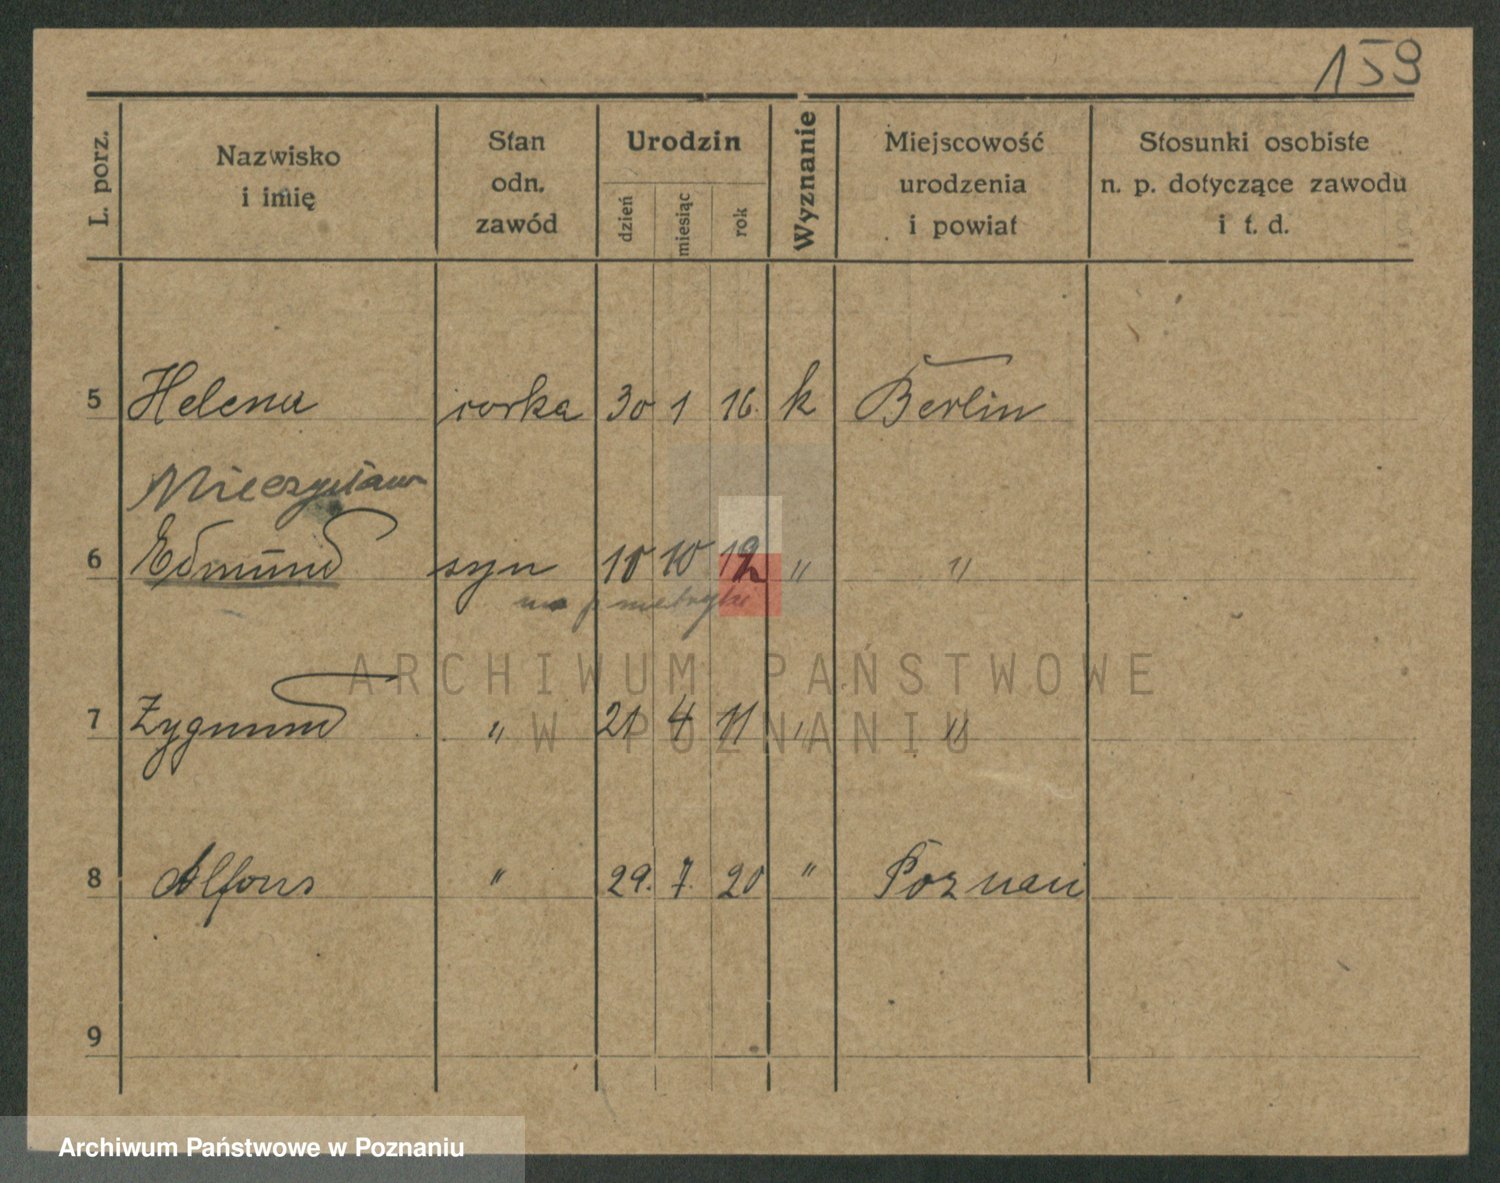 159
L. porz.
Nazwisko
i imię
Stan
odn.
zawód
Urodzin
dzień
miesiąc
rok
Wyznanie
Miejscowość
urodzenia
i powiat
Stosunki osobiste
n. p. dotyczące zawodu
i t. d.
5 Helena corka 30 1 16. k Berlin
Mieczysław
6 Edmund syn 10 12 " "
metryki
7 Zygmund " 21 4 11 " "
8 Alfons " 29. 7. 20 " Poznań
9
ARCHIWUM PAŃSTWOWE
W POZNANIU
Archiwum Państwowe w Poznaniu